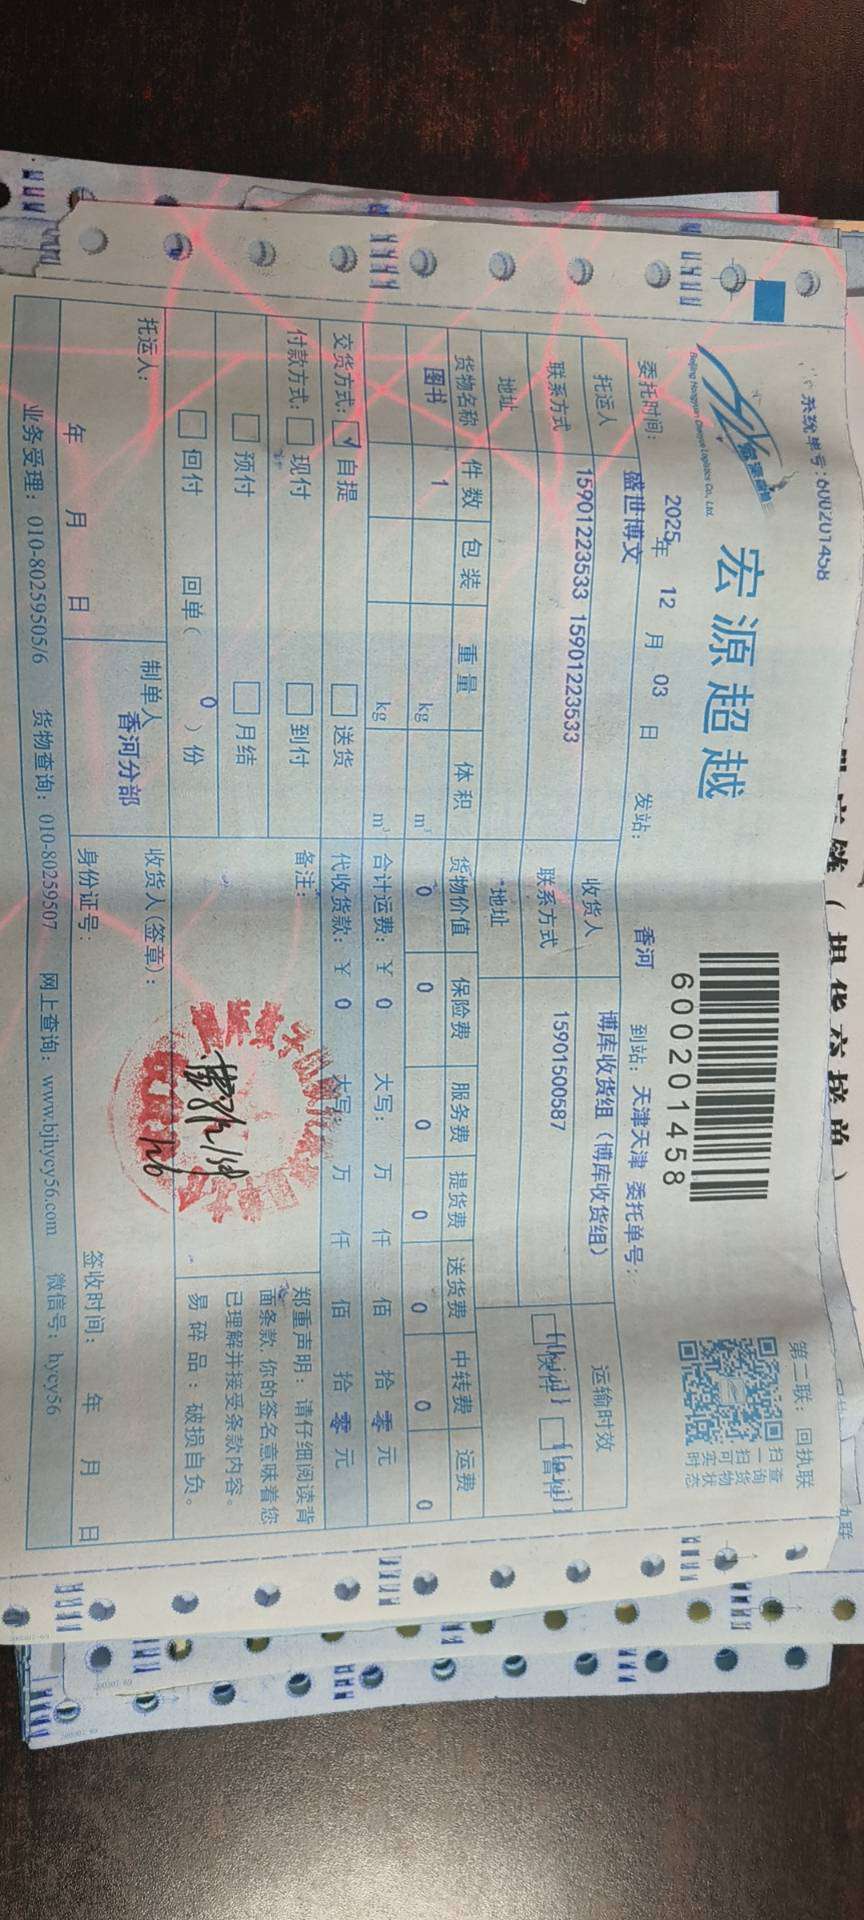 系统单号:600201458
第二联：回执联
宏源超越
Beijing Hongyuan Chaoyue Logistics Co., Ltd.
600201458
扫一扫可实时
查询货物状态
委托时间: 2025年 12 月 03 日 发站: 香河 到站: 天津天津 委托单号:
托运人 盛世博文 收货人 博库收货组(博库收货组) 运输时效
联系方式 15901223533 15901223533 联系方式 15901500587
地址 地址
货物名称 件数 包装 重量 体积 货物价值 保险费 服务费 提货费 送货费 中转费 运费
图书 1 kg m³ 0 0 0 0 0 0 0
kg m³ 合计运费: ¥ 0 大写: 万 仟 佰 拾 零 元
交货方式: ✓ 自提 送货 代收货款: ¥ 0 大写: 万 仟 佰 拾 零 元
付款方式: 现付 到付 备注:
预付 月结
回付 回单( 0 )份
郑重声明：请仔细阅读背
面条款, 你的签名意味着您
已理解并接受条款内容。
易碎品：破损自负。
托运人: 制单人 收货人(签章):
香河分部
年 月 日 身份证号: 签收时间: 年 月 日
业务受理: 010-80259505/6 货物查询: 010-80259507 网上查询: www.bjhycy56.com 微信号: hycy56